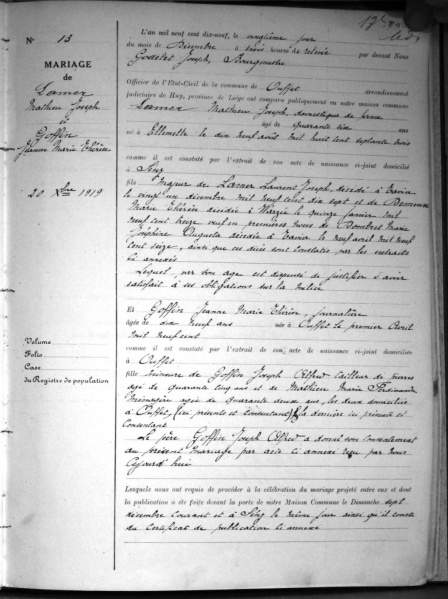 N° 13
MARIAGE
de
Lamer
Mathieu Joseph
et
Goffin
Jeanne Marie Thérèse
20 Xbre 1919
Volume
Folio
Case
du Registre de population
L'an mil neuf cent dix-neuf, le vingtième jour
du mois de Décembre à trois heures de relevée par devant Nous
Joseph, Bourgmestre
Officier de l'Etat-Civil de la commune de Ouffet arrondissement
judiciaire de Huy, province de Liège ont comparu publiquement en notre maison commune
Lamer Mathieu Joseph, domestique de ferme
âgé de quarante six ans
né à Ellemelle le dix neuf avril mil huit cent septante trois
comme il est constaté par l'extrait de son acte de naissance ci-joint domicilié
à
fils majeur de Lamer Laurent Joseph, décédé à
le vingt un décembre mil neuf cent dix sept et de
Marie Thérèse décédée à Warzée le quinze janvier mil
neuf cent treize veuf en premières noces de Dombret Marie
Joséphine Augusta décédée à le neuf avril mil neuf
cent seize, ainsi que ces décès sont constatés par les extraits
ci annexés
Lequel, par son âge est dispensé de justifier d'avoir
satisfait à ses obligations sur la milice
Et Goffin Jeanne Marie Thérèse, journalière
âgée de dix neuf ans née à Ouffet le premier Avril
mil neuf cent
comme il est constaté par l'extrait de son acte de naissance ci-joint domiciliée
à Ouffet
fille mineure de Goffin Joseph Alfred tailleur de pierres
âgé de quarante cinq ans et de Mathieu Marie
ménagère âgée de quarante deux ans, les deux domiciliés
à Ouffet, (ici présents et consentants) la dernière ici présente et
consentant
Le père Goffin Joseph Alfred a donné son consentement
au présent mariage par acte ci annexé reçu par nous
cejourd'hui
Lesquels nous ont requis de procéder à la célébration du mariage projeté entre eux et dont
la publication a été faite devant la porte de notre Maison Commune le Dimanche sept
décembre courant et à le même jour ainsi qu'il conste
du certificat de publication ci annexé